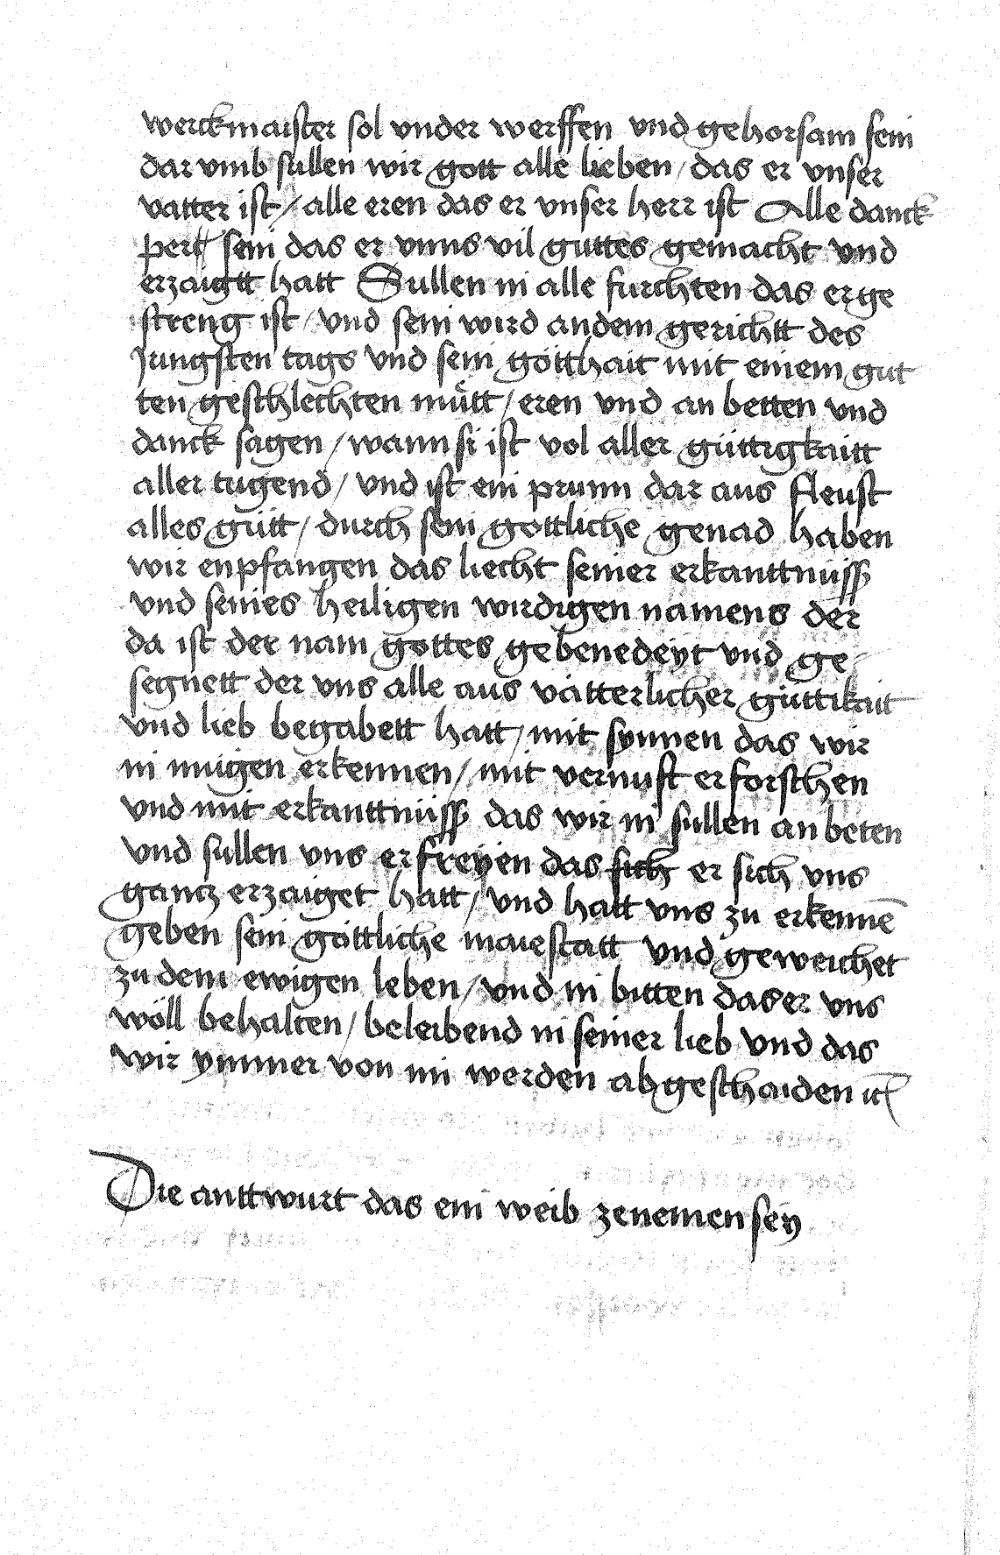 werckmaister sol vnder werffen vnd gehorsam sein
dar vmb sullen wir gott alle lieben / das er vnser
vatter ist / alle eren das er vnser herr ist Alle danck
sein das er vnns vil guttes gemacht vnd
erzaigtt hatt Sullen in alle furchten das er ge
streng ist / vnd sein wird an dem gerichtt des
Jungsten tags vnd sein götthait mit einem gut
ten geschlechten mütt / eren vnd an betten vnd
danck sagen / wann si ist vol aller güttigkaitt
aller tugend / vnd ist ein prunn dar aus fleust
alles gütt / durch sein gottliche genad haben
wir enpfangen das liecht seiner erkanttnüss
vnd seines heiligen wirdigen namens der
da ist der nam gottes gebenedeyt vnd ge
segnett der vns alle aus vätterlicher güttikait
vnd lieb begabett hatt / mit synnen das wir
in mügen erkennen / mit vernuft er forschen
vnd mit erkanttnüss das wir in sullen an beten
vnd sullen vns er freyen das sich er sich vns
gancz erzaiget hatt / vnd hatt vns zu erkennē
geben sein göttliche maiestatt vnd geweichet
zu dem ewigen leben / vnd in bitten das er vns
wöll behalten / beleibend in seiner lieb vnd das
wir ymmer von im werden abgeschaiden
Die anttwurt das ein weib zenemen sey